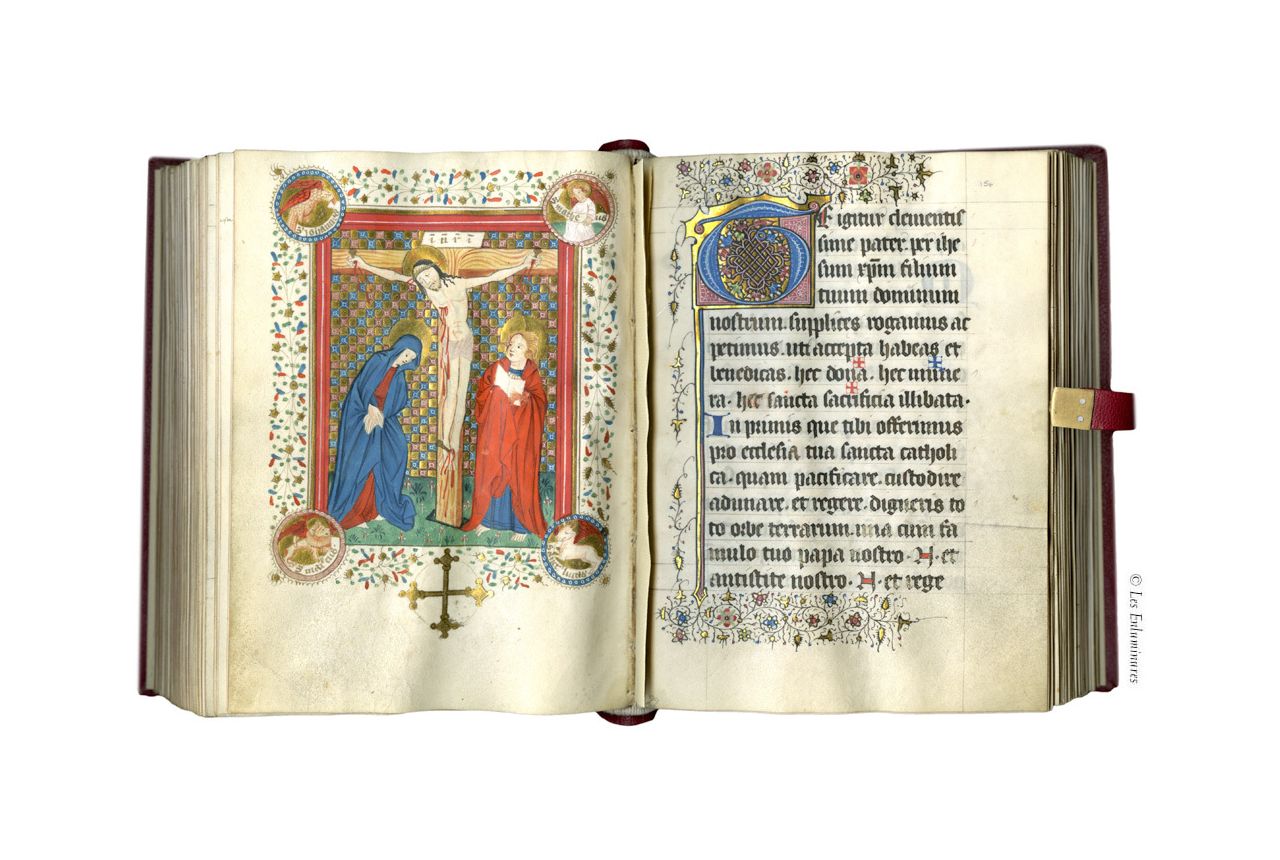 inri
TE igitur clementis
sime pater. per ihe
sum xp̅m filium
tuum dominum
nostrum supplices rogamus ac
petimus. uti accepta habeas et
benedicas. hec dona. hec mune
ra. hec sancta sacrificia illibata.
In primis que tibi offerimus
pro ecclesia tua sancta catholi
ca. quam pacificare. custodire
adunare. et regere. digneris to
to orbe terrarum. una cum fa
mulo tuo papa nostro. N. et
antistite nostro. N. et rege
© Les Enluminures